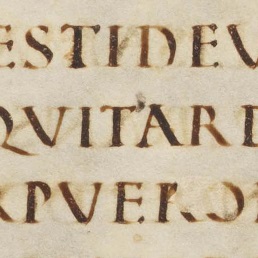 ESTIDEV
QUIT'ARD
XPVERO